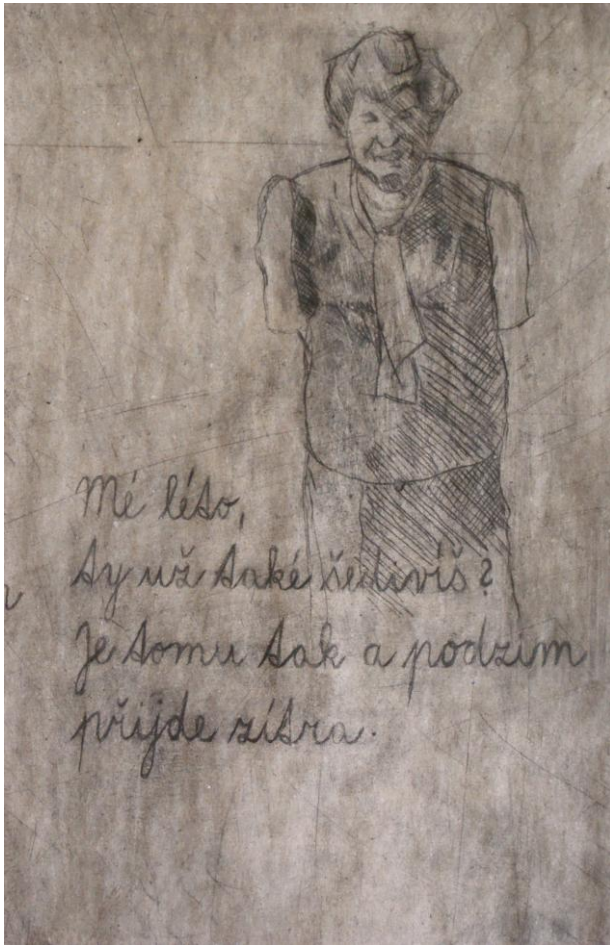 Mé léto,
ty už také šedivíš?
Je tomu tak a podzim
přijde zítra.